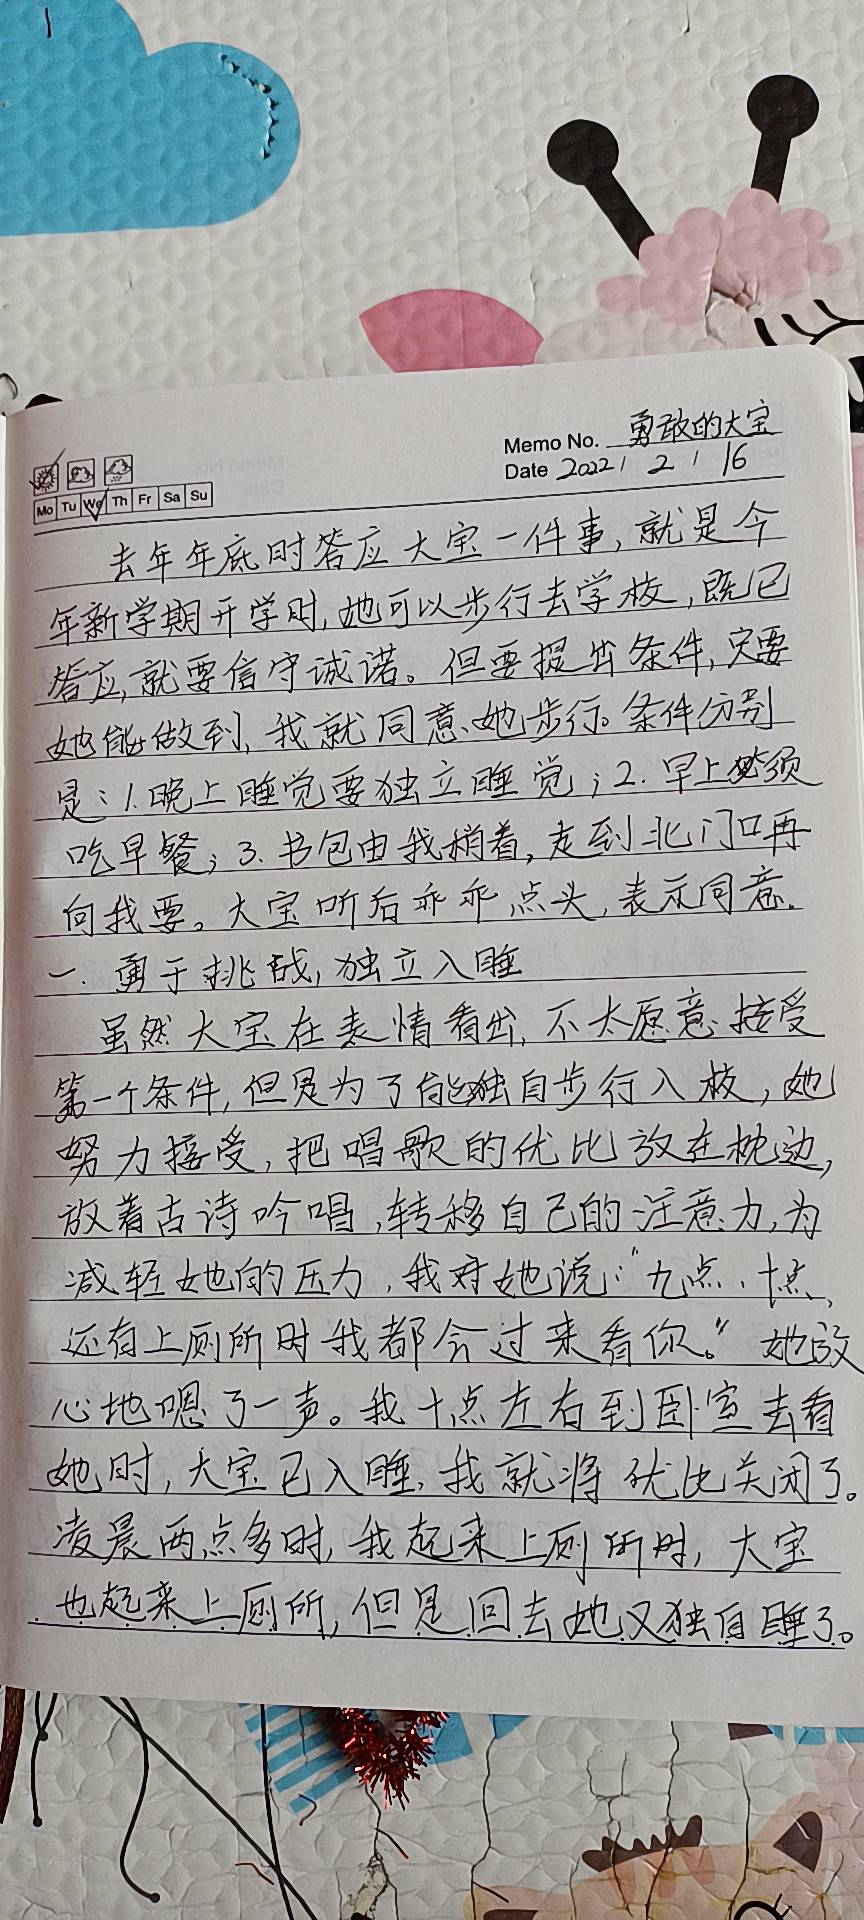 Memo No. 勇敢的大宝
Date 2022 / 2 / 16
Mo Tu We Th Fr Sa Su
去年年底时答应大宝一件事,就是今
年新学期开学时,她可以步行去学校,既已
答应,就要信守诚诺。但要提出条件,只要
她能做到,我就同意她步行。条件分别
是:1.晚上睡觉要独立睡觉;2.早上必须
吃早餐;3.书包由我捎着,走到北门口再
向我要。大宝听后乖乖点头,表示同意。
一.勇于挑战,独立入睡
虽然大宝在表情看出,不太愿意接受
第一个条件,但是为了能独自步行入校,她
努力接受,把唱歌的优比放在枕边,
放着古诗吟唱,转移自己的注意力,为
减轻她的压力,我对她说:“九点、十点、
还有上厕所时我都会过来看你。”她放
心地嗯了一声。我十点左右到卧室去看
她时,大宝已入睡,我就将优比关闭了。
凌晨两点多时,我起来上厕所时,大宝
也起来上厕所,但是回去她又独自睡了。